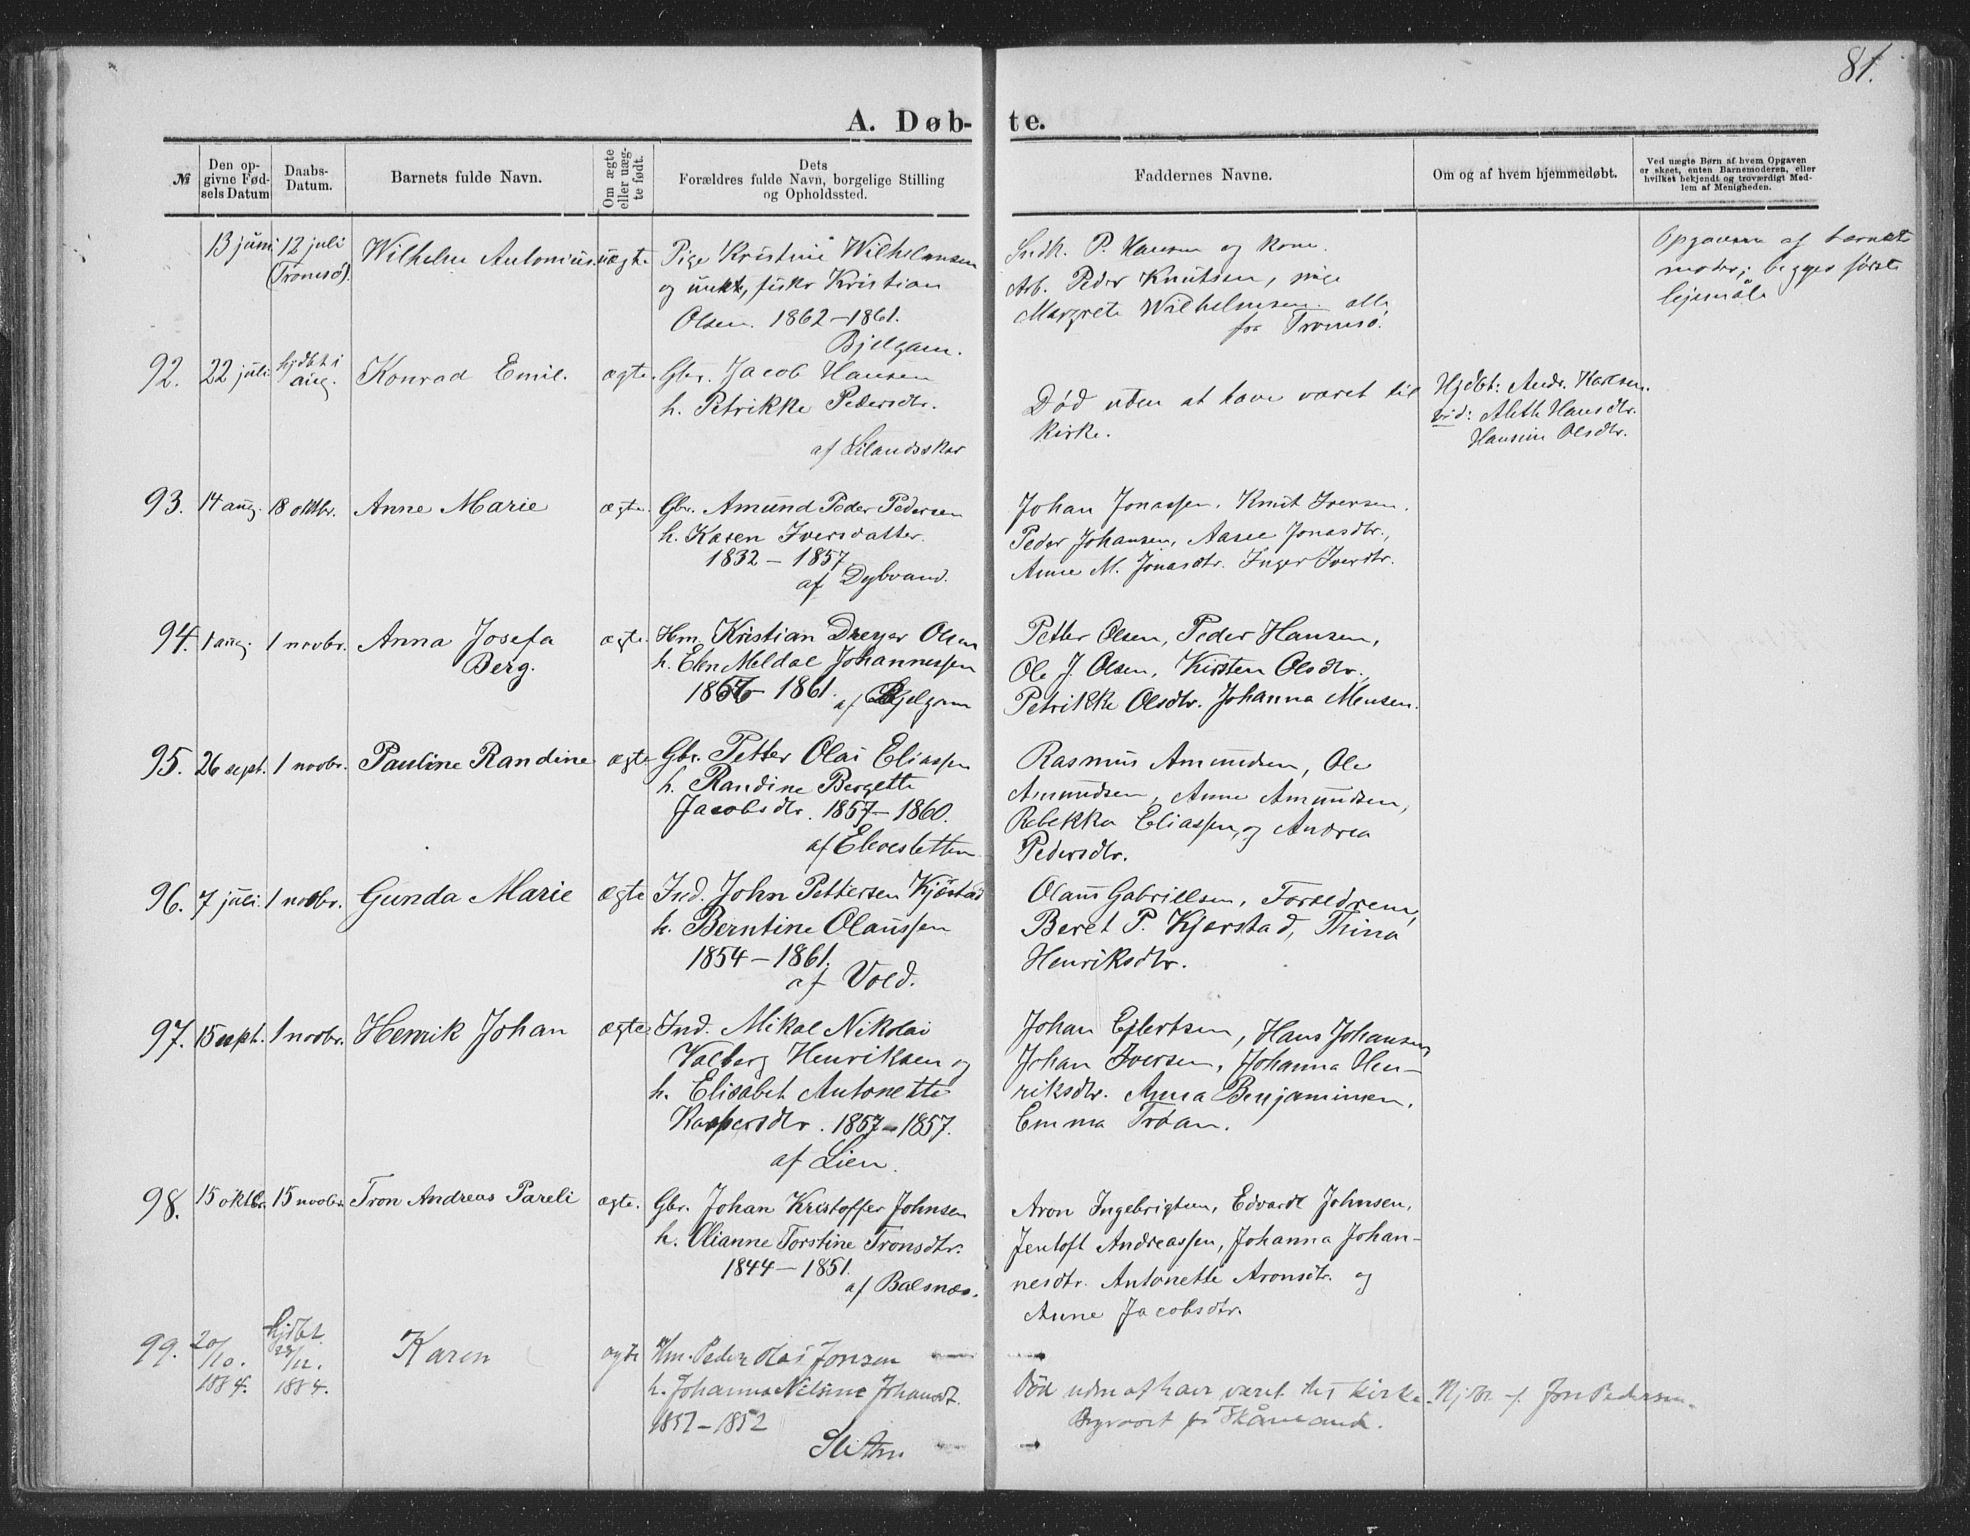 81.
A. Døb-
te.
№
Den op-
givne Fød-
sels Datum
Daabs-
Datum.
Barnets fulde Navn.
Om ægte
eller uæg-
te født.
Dets
Forældres fulde Navn, borgelige Stilling
og Opholdssted.
Faddernes Navne.
Om og af hvem hjemmedøbt.
Ved uægte Børn af hvem Opgaven
er skeet, enten Barnemoderen, eller
hvilket bekjendt og troværdigt Med-
lem af Menigheden.
13 juni
12 juli
(Tromsø).
Wilhelm Antonius.
uægte
Pige Kristine Wilhelmsen
og unkk, fisker Kristian
Olsen. 1862–1861.
P. Hansen og kone.
Arb. Peder Knutsen, pige
Margrete Wilhelmsen. alle
fra Tromsø.
Opgaven af barnets
moder; begges første
lejemåle
92.
22 juli
hjdbt i
aug.
Konrad Emil.
ægte.
Gbr. Jacob Hansen
h. Petrikke Pedersdtr.
af Lilandsskar
Død uden at have været til
kirke.
Hjdbt: Andr. Hansen.
vid: Aleth Hansdtr.
Hansine Olsdtr.
93.
14 aug.
18 oktbr.
Anne Marie
ægte.
Gbr. Amund Peder Pedersen
h. Karen Iversdatter.
1832 – 1857
af Dybvand.
Johan Jonassen, Knut Iversen,
Peder Johansen, Jonasdtr.,
Anne M. Jonasdtr. Inger Iversdtr.
94.
1 aug.
1 novbr.
Anna Josefa
Berg.
ægte.
Hm. Kristian Dreyer Olsen
h. Elen Meldal Johannessen
1861. af
Petter Olsen, Peder Hansen,
Ole J. Olsen, Kirsten Olsdtr.,
Petrikke Olsdtr. Johanna Monsen.
95.
26 sept.
1 novbr.
Pauline Randine
ægte
Gbr. Petter Olai Eliassen
h. Randine Bergette
Jacobsdtr. 1857–1860.
af Elvesletten
Rasmus Amundsen, Ole
Amundsen, Anne Amundsen,
Rebekka Eliassen, og Andrea
Pedersdtr.
96.
7 juli.
1 novbr.
Gunda Marie
ægte
Ind. John Pettersen Kjøstad
h. Berntine Olaussen
1854 – 1861.
af Vold.
Olaus Gabriellsen, Foreldrene,
Beret P. Kjerstad, Thina
Henriksdtr.
97.
15 sept.
1 novbr.
Henrik Johan
ægte
Ind. Mikal Nikolai
Valberg Henriksen og
h. Elisabet Antonette
Kaspersdtr. 1857–1857.
af Lien.
Johan Ejlertsen, Hans Johansen,
Johan Iversen, Johanna Hen-
riksdtr. Anna Benjaminsen,
Emma Troan.
98.
15 oktbr.
15 novbr.
Tron Andreas Pareli
ægte.
Gbr. Johan Kristoffer Johnsen
h. Olianne Torstine Tronsdtr.
1844 – 1851.
af Balsnæs.
Aron Ingebrigtsen, Edvard Johnsen,
Jentoft Andreassen, Johanna Johan-
nesdtr. Antonette Aronsdtr. og
Anne Jacobsdtr.
99.
20/10.
1884.
hjdbt.
1884.
Karen
ægte
Hm. Peder Olai Jonsen
h. Johanna Nelsine Johansdt.
1857 – 1852
Død uden at have været til kirke.
Begravet
Hjdbt af Jon Pedersen.